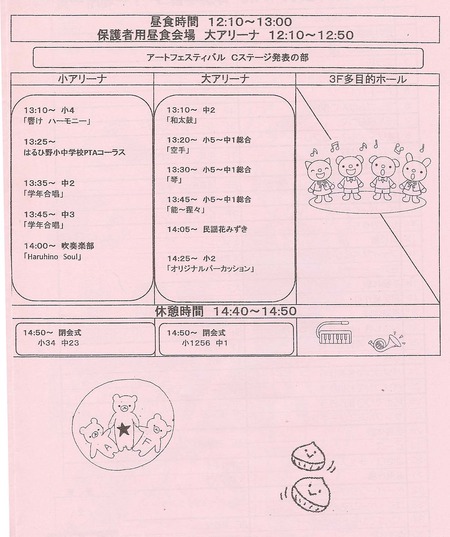 昼食時間 12:10～13:00
保護者用昼食会場 大アリーナ 12:10～12:50
アートフェスティバル Cステージ発表の部
小アリーナ
大アリーナ
3F多目的ホール
13:10～ 小4
「響け ハーモニー」
13:25～
はるひ野小中学校PTAコーラス
13:35～ 中2
「学年合唱」
13:45～ 中3
「学年合唱」
14:00～ 吹奏楽部
「Haruhino Soul」
13:10～ 中2
「和太鼓」
13:20～ 小5～中1総合
「空手」
13:30～ 小5～中1総合
「琴」
13:45～ 小5～中1総合
「能～猩々」
14:05～ 民謡花みずき
14:25～ 小2
「オリジナルパーカッション」
休憩時間 14:40～14:50
14:50～ 閉会式
小34 中23
14:50～ 閉会式
小1256 中1
A
F